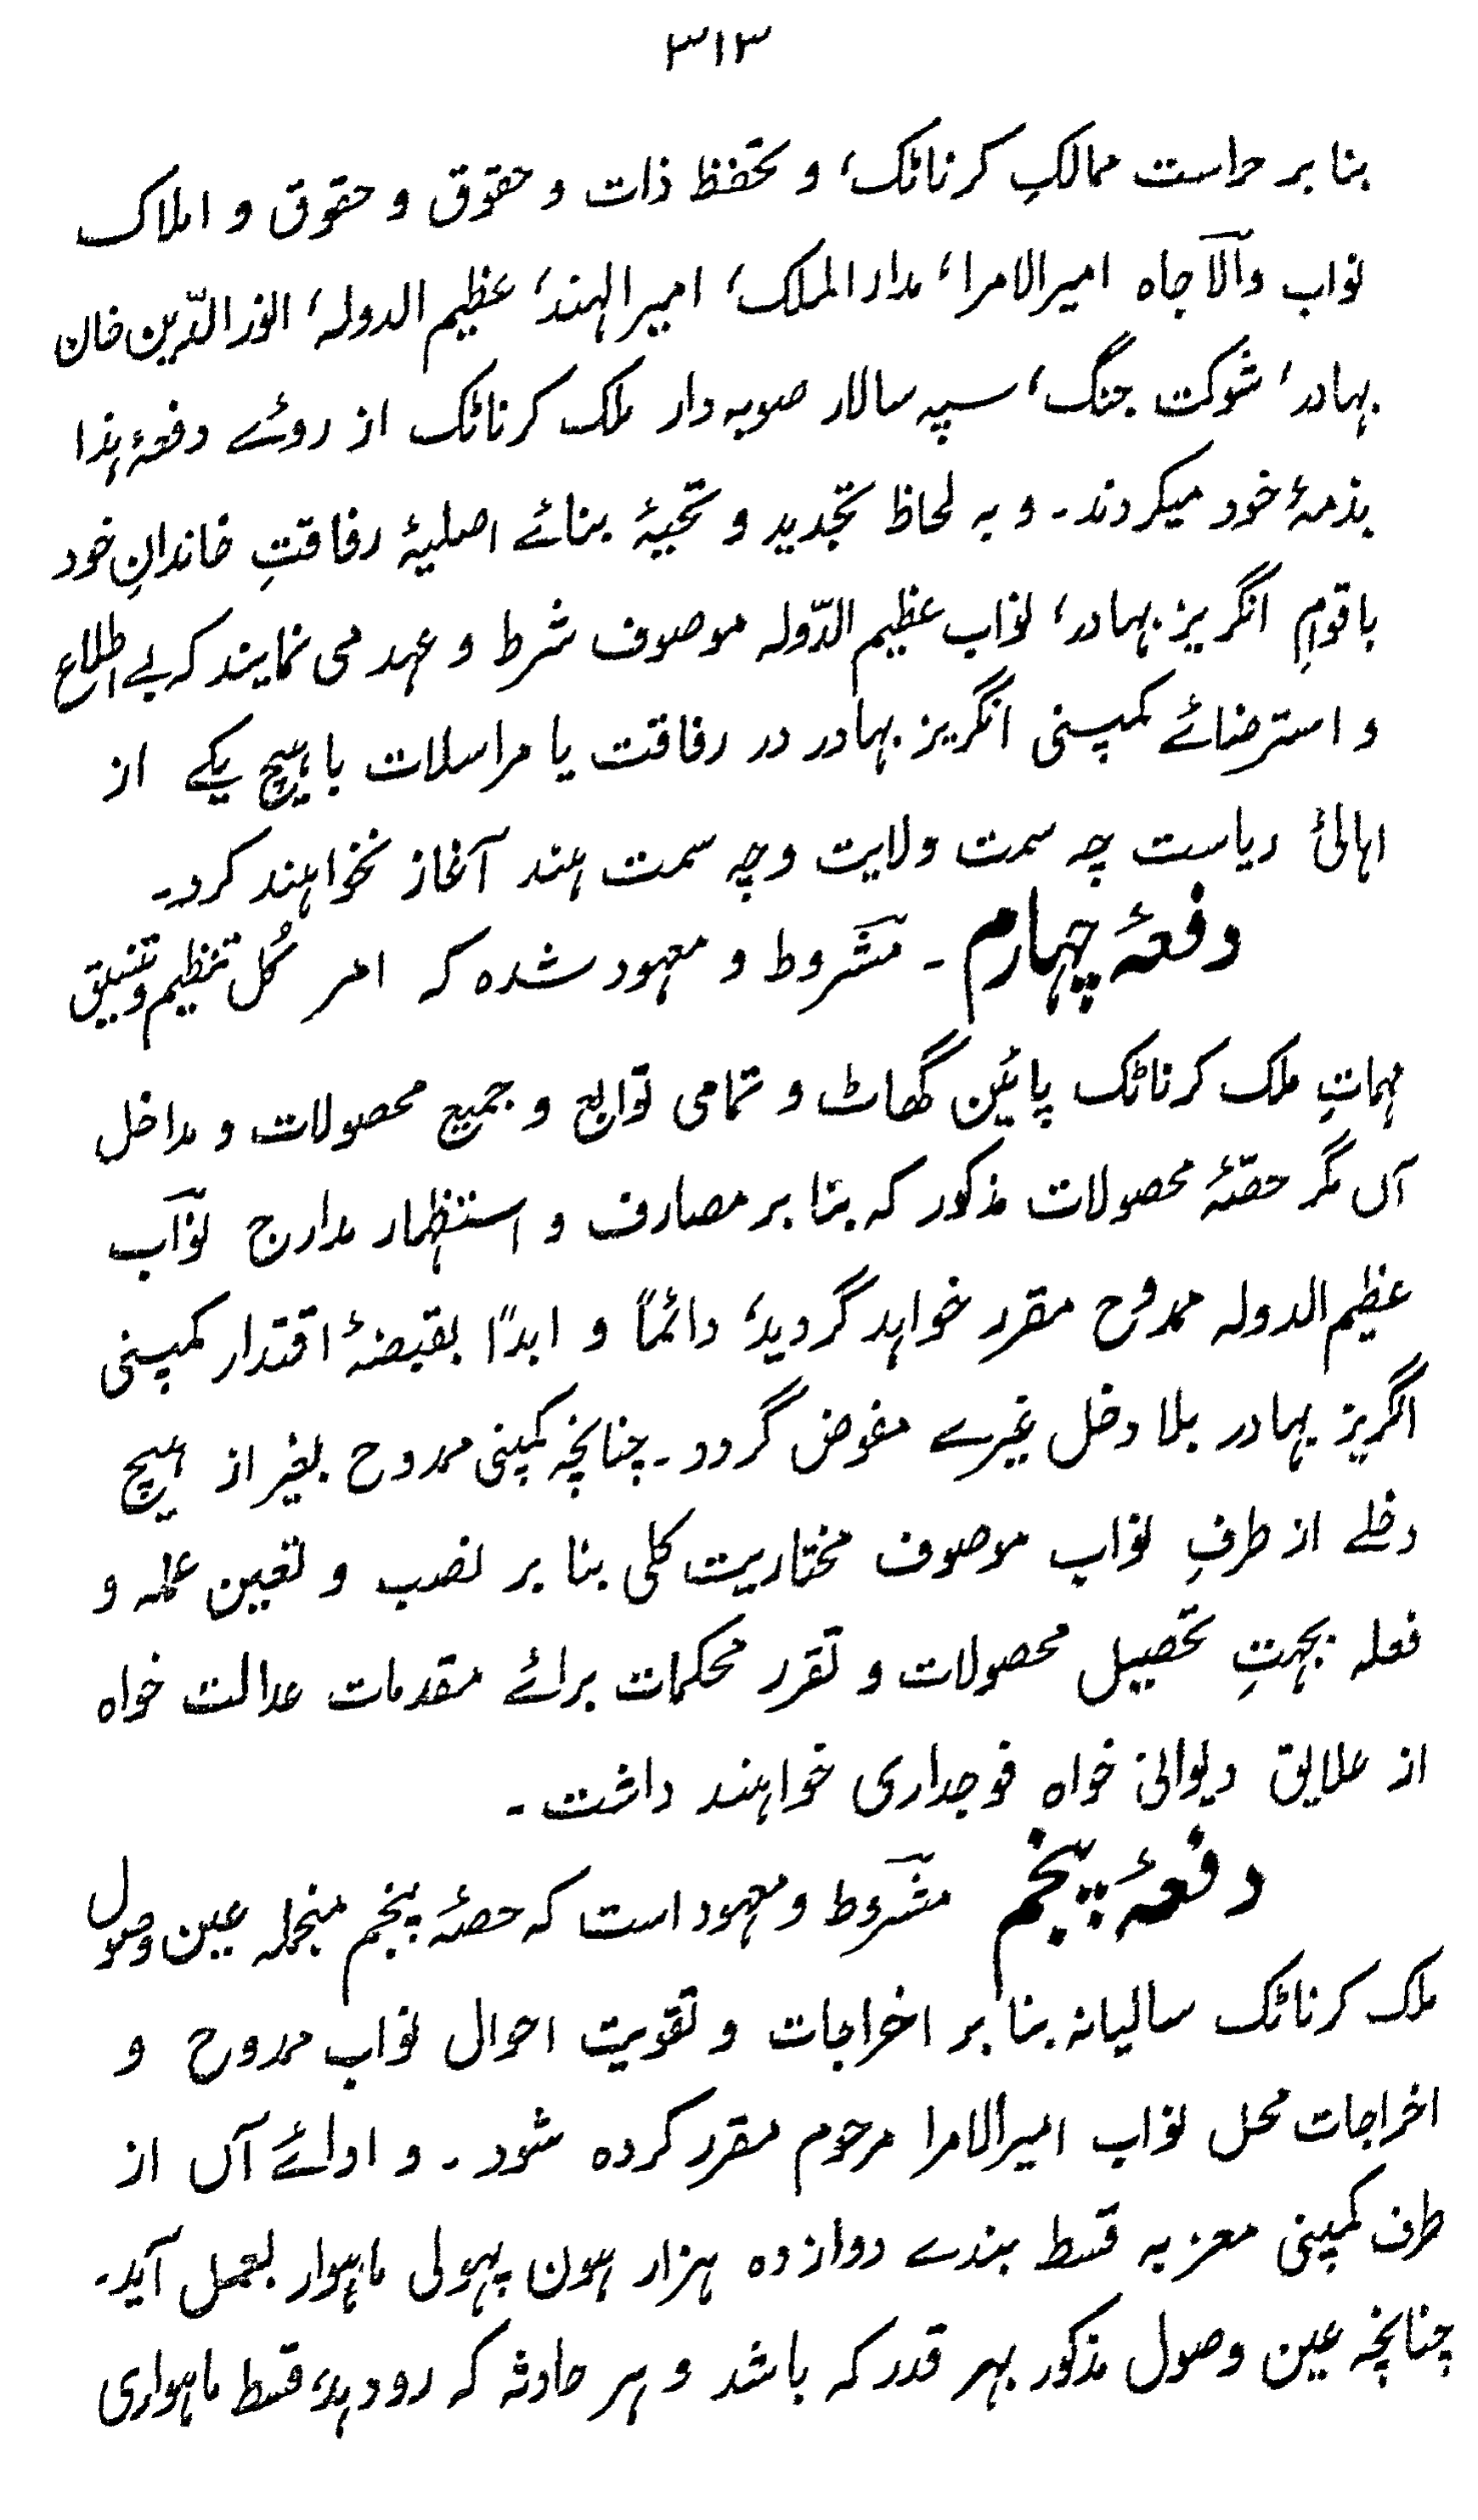 ۳۱۳
بنا بر حراست ممالکِ کرناٹک، و تحفظ ذات و حقوق و حقوق و املاک
نواب والآجاہ امیرالامرا، مدار الملک، امیر الہند، عظیم الدولہ، انور الدّین خان
بہادر، شوکت جنگ، سپہ سالار صوبہ دار ملک کرناٹک از روئے دفعۂ ہذا
بذمۂ خود میکردند۔ و بہ لحاظ تجدید و تحیۂ بنائے اصلیۂ رفاقتِ خاندانِ خود
با قومِ انگریز بہادر، نواب عظیم الدّولہ موصوف شرط و عہد می نمایند کہ بے اطلاع
و استرضائے کمپنی انگریز بہادر در رفاقت یا مراسلات با ہیچ یکے از
اہالئ ریاست چہ سمت ولایت وچہ سمت ہند آغاز نخواہند کرد۔
دفعۂ چہارم ۔ مشروط و معہود شدہ کہ امر کُل تنظیم و تنسیق
مہماتِ ملک کرناٹک پائین گھاٹ و تمامی توابع و جمیع محصولات و مداخل
آں مگر حصّۂ محصولات مذکور کہ بنا بر مصارف و استظہار مدارج نوّاب
عظیم الدولہ ممدوح مقرر خواہد گردید، دائماً و ابداً بقبضۂ اقتدار کمپنی
انگریز بہادر بلا دخل غیرے مفوض گردد۔ چنانچہ کمپنی ممدوح بغیر از ہیچ
دخلے از طرفِ نواب موصوف مختاریت کلی بنا بر نصب و تعین عملہ و
فعلہ بجہتِ تحصیل محصولات و تقرر محکمات برائے مقدمات عدالت خواہ
از علایق دیوانی خواہ فوجداری خواہند داشت ۔
دفعۂ پنجم مشروط و معہود است کہ حصۂ پنجم منجملہ عین وصول
ملک کرناٹک سالیانہ بنا بر اخراجات و تقویت احوال نواب ممدوح و
اخراجات محل نواب امیرالامرا مرحوم مقرر کردہ شود ۔ و ادائے آں از
طرف کمپنی معز بہ قسط بندے دوازدہ ہزار ہون پہولی ماہوار بعمل آید۔
چنانچہ عین وصول مذکور بہر قدر کہ باشد و ہر حادثہ کہ رو دہد، قسط ماہواری